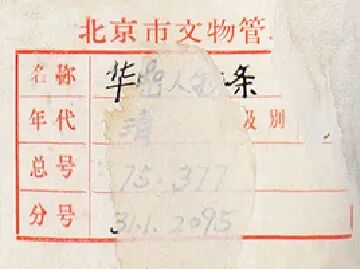 北京市文物管
名称 华嵒人物 条
年代 清 级别
总号 75.377
分号 31.1.2095